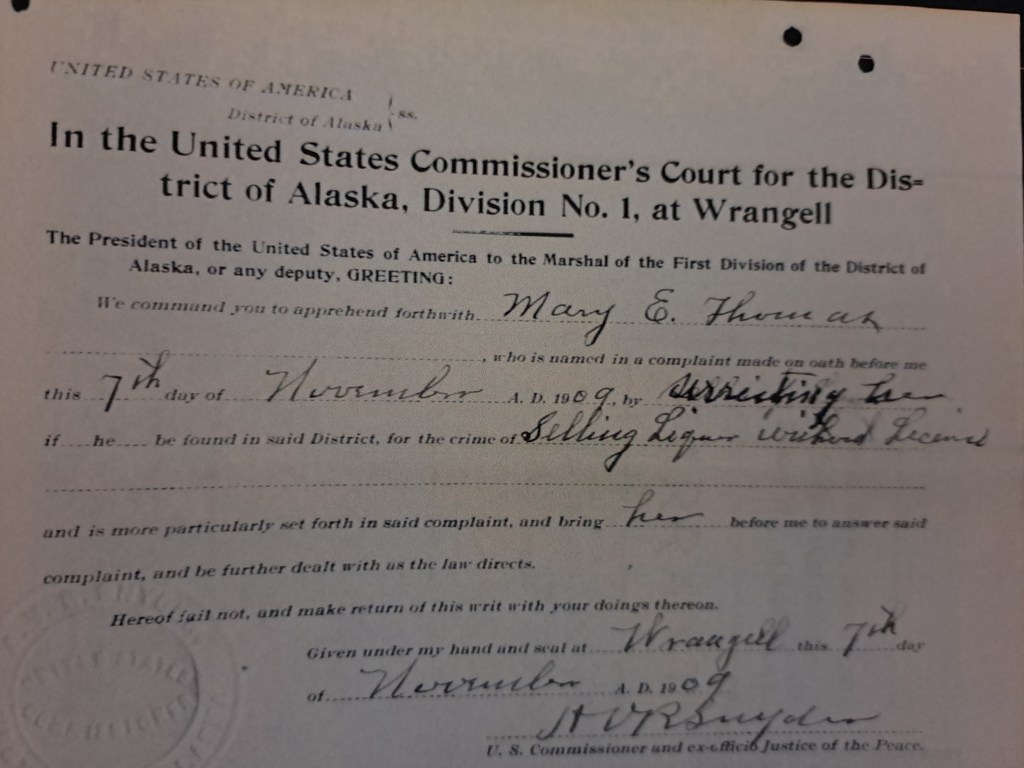 UNITED STATES OF AMERICA
District of Alaska } ss.
In the United States Commissioner's Court for the Dis=
trict of Alaska, Division No. 1, at Wrangell
The President of the United States of America to the Marshal of the First Division of the District of
Alaska, or any deputy, GREETING:
We command you to apprehend forthwith Mary E. Thomas
, who is named in a complaint made on oath before me
this 7th day of November A. D. 1909, by
if he be found in said District, for the crime of Selling Liquor without License
and is more particularly set forth in said complaint, and bring her before me to answer said
complaint, and be further dealt with as the law directs.
Hereof fail not, and make return of this writ with your doings thereon.
Given under my hand and seal at Wrangell this 7th day
of November A. D. 1909
Snyder
U. S. Commissioner and ex-officio Justice of the Peace.